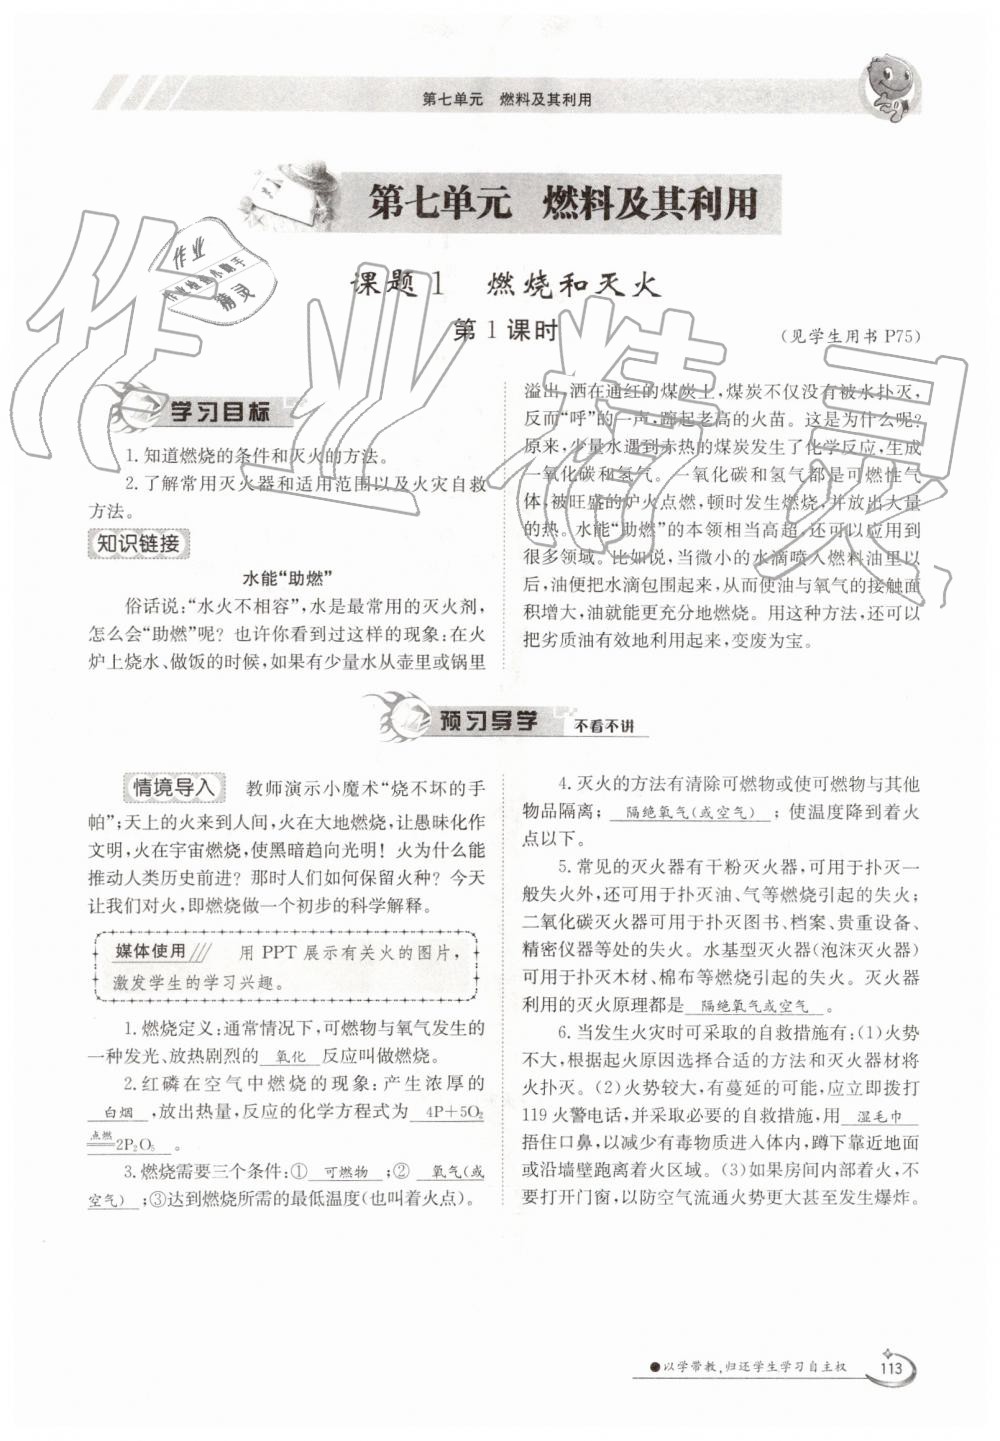 第七单元　燃料及其利用
第七单元　燃料及其利用
课题1　燃烧和灭火
第1课时
(见学生用书P75)
学习目标
1.知道燃烧的条件和灭火的方法。
2.了解常用灭火器和适用范围以及火灾自救
方法。
知识链接
水能“助燃”
俗话说:“水火不相容”,水是最常用的灭火剂,
怎么会“助燃”呢？也许你看到过这样的现象:在火
炉上烧水、做饭的时候,如果有少量水从壶里或锅里
溢出,洒在通红的煤炭上,煤炭不仅没有被水扑灭,
反而“呼”的一声,蹿起老高的火苗。这是为什么呢?
原来,少量水遇到赤热的煤炭发生了化学反应,生成
一氧化碳和氢气。一氧化碳和氢气都是可燃性气
体,被旺盛的炉火点燃,顿时发生燃烧,并放出大量
的热。水能“助燃”的本领相当高超,还可以应用到
很多领域。比如说,当微小的水滴喷入燃料油里以
后,油便把水滴包围起来,从而使油与氧气的接触面
积增大,油就能更充分地燃烧。用这种方法,还可以
把劣质油有效地利用起来,变废为宝。
预习导学　不看不讲
情境导入　教师演示小魔术“烧不坏的手
帕”;天上的火来到人间,火在大地燃烧,让愚昧化作
文明,火在宇宙燃烧,使黑暗趋向光明！火为什么能
推动人类历史前进？那时人们如何保留火种？今天
让我们对火,即燃烧做一个初步的科学解释。
媒体使用　用PPT展示有关火的图片,
激发学生的学习兴趣。
1.燃烧定义:通常情况下,可燃物与氧气发生的
一种发光、放热剧烈的 氧化 反应叫做燃烧。
2.红磷在空气中燃烧的现象:产生浓厚的
白烟 ,放出热量,反应的化学方程式为 4P+5O₂
点燃
═2P₂O₅ 。
3.燃烧需要三个条件:① 可燃物 ;② 氧气(或
空气) ;③达到燃烧所需的最低温度(也叫着火点)。
4.灭火的方法有清除可燃物或使可燃物与其他
物品隔离; 隔绝氧气(或空气) ;使温度降到着火
点以下。
5.常见的灭火器有干粉灭火器,可用于扑灭一
般失火外,还可用于扑灭油、气等燃烧引起的失火;
二氧化碳灭火器可用于扑灭图书、档案、贵重设备、
精密仪器等处的失火。水基型灭火器(泡沫灭火器)
可用于扑灭木材、棉布等燃烧引起的失火。灭火器
利用的灭火原理都是 隔绝氧气或空气 。
6.当发生火灾时可采取的自救措施有:(1)火势
不大,根据起火原因选择合适的方法和灭火器材将
火扑灭。(2)火势较大,有蔓延的可能,应立即拨打
119火警电话,并采取必要的自救措施,用 湿毛巾
捂住口鼻,以减少有毒物质进入体内,蹲下靠近地面
或沿墙壁跑离着火区域。(3)如果房间内部着火,不
要打开门窗,以防空气流通火势更大甚至发生爆炸。
●以学带教,归还学生学习自主权
113
作业
作业检查小助手
精灵
作业精灵